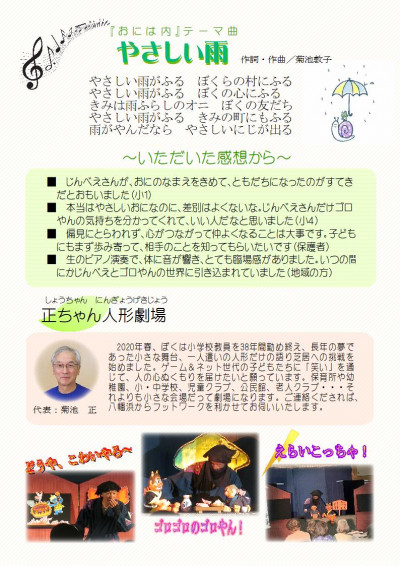 『おには内』テーマ曲
やさしい雨 作詞・作曲／菊池敦子
やさしい雨がふる ぼくらの村にふる
やさしい雨がふる ぼくの心にふる
きみは雨ふらしのオニ ぼくの友だち
やさしい雨がふる きみの町にもふる
雨がやんだなら やさしいにじが出る
～いただいた感想から～
■ じんべえさんが、おにのなまえをきめて、ともだちになったのがすてき
だとおもいました（小1）
■ 本当はやさしいおになのに、差別はよくないな。じんべえさんだけゴロ
やんの気持ちを分かってくれて、いい人だなと思いました（小4）
■ 偏見にとらわれず、心がつながって仲よくなることは大事です。子ども
にもまず歩み寄って、相手のことを知ってもらいたいです（保護者）
■ 生のピアノ演奏で、体に音が響き、とても臨場感がありました。いつの間
にかじんべえとゴロやんの世界に引き込まれていました（地域の方）
しょうちゃん にんぎょうげきじょう
正ちゃん人形劇場
2020年春、ぼくは小学校教員を38年間勤め終え、長年の夢で
あった小さな舞台、一人遣いの人形だけの語り芝居への挑戦を
始めました。ゲーム＆ネット世代の子どもたちに「笑い」を通
じて、人の心ぬくもりを届けたいと願っています。保育所や幼
稚園、小・中学校、児童クラブ、公民館、老人クラブ・・・そ
れよりも小さな会場だって劇場になります。ご連絡くだされば、
八幡浜からフットワークを利かせてお伺いいたします。
代表：菊池 正
どうや、こわいやろ～
ゴロゴロのゴロやん！
えらいこっちゃ！